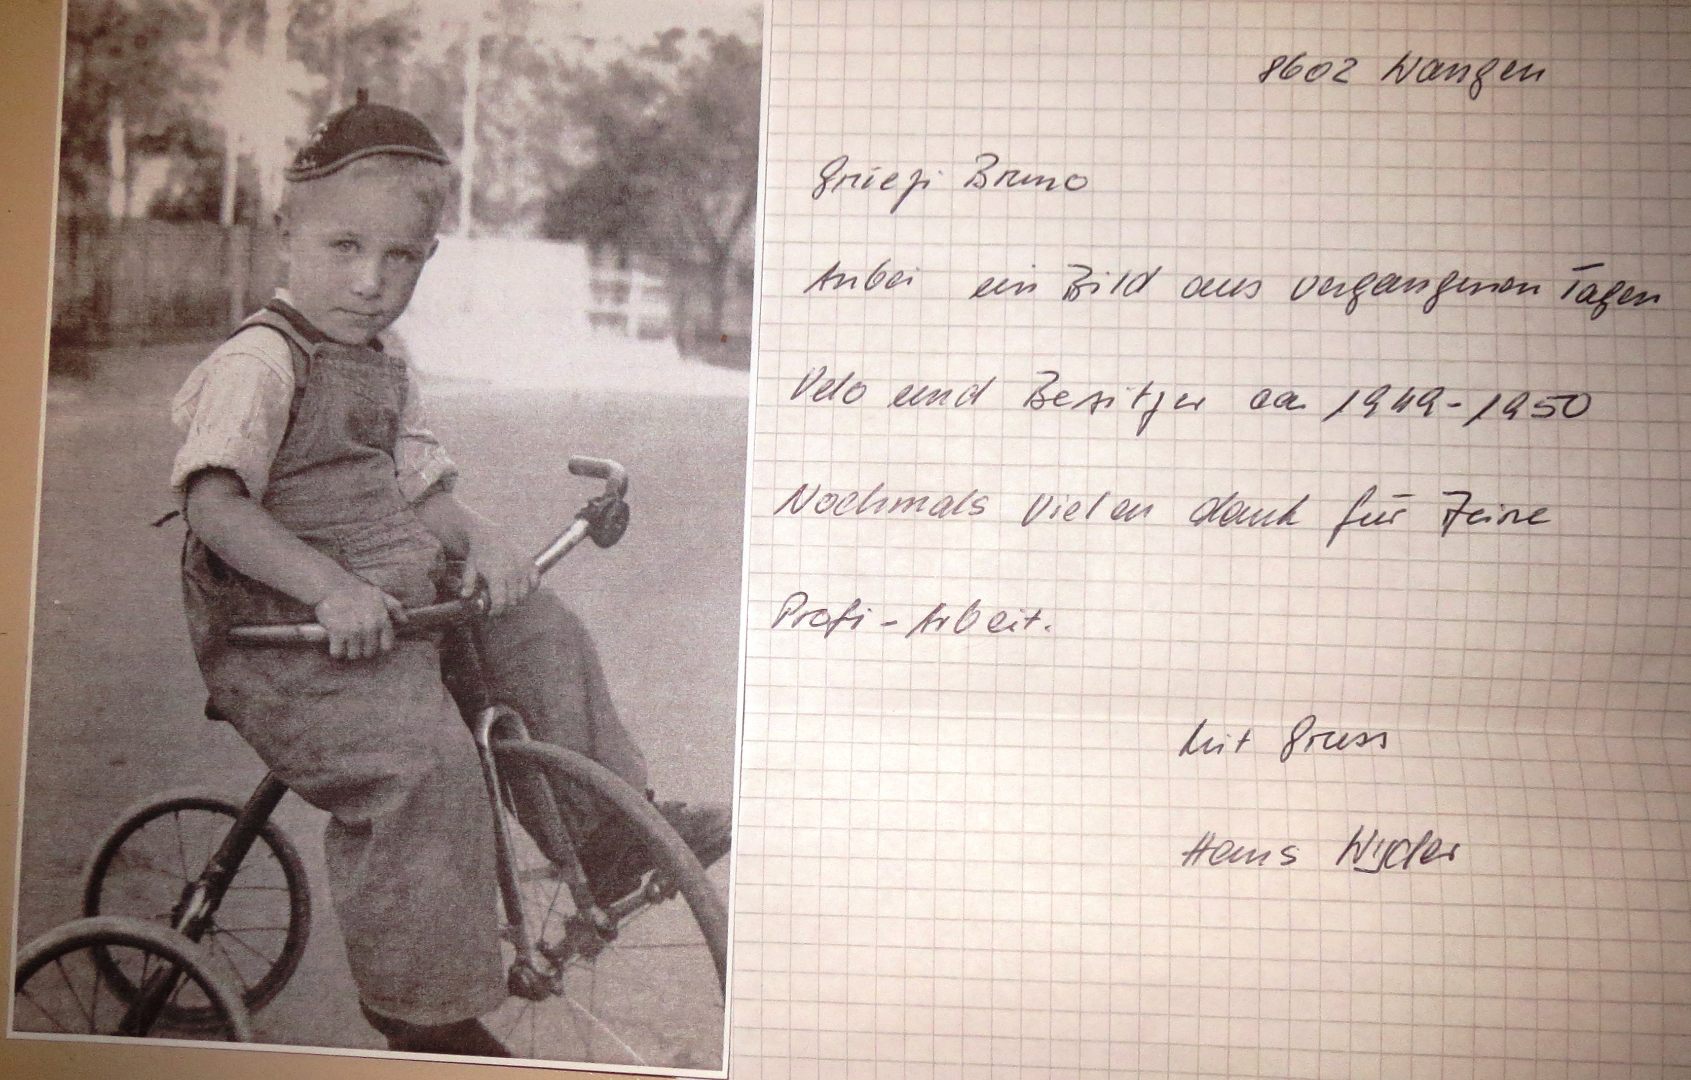 8602 Wangen
Grüezi Bruno
Anbei ein Bild aus vergangenen Tagen
Velo und Besitzer ca 1949-1950
Nochmals Vielen dank für Deine
Profi-Arbeit.
Mit Gruss
Hans Wyder